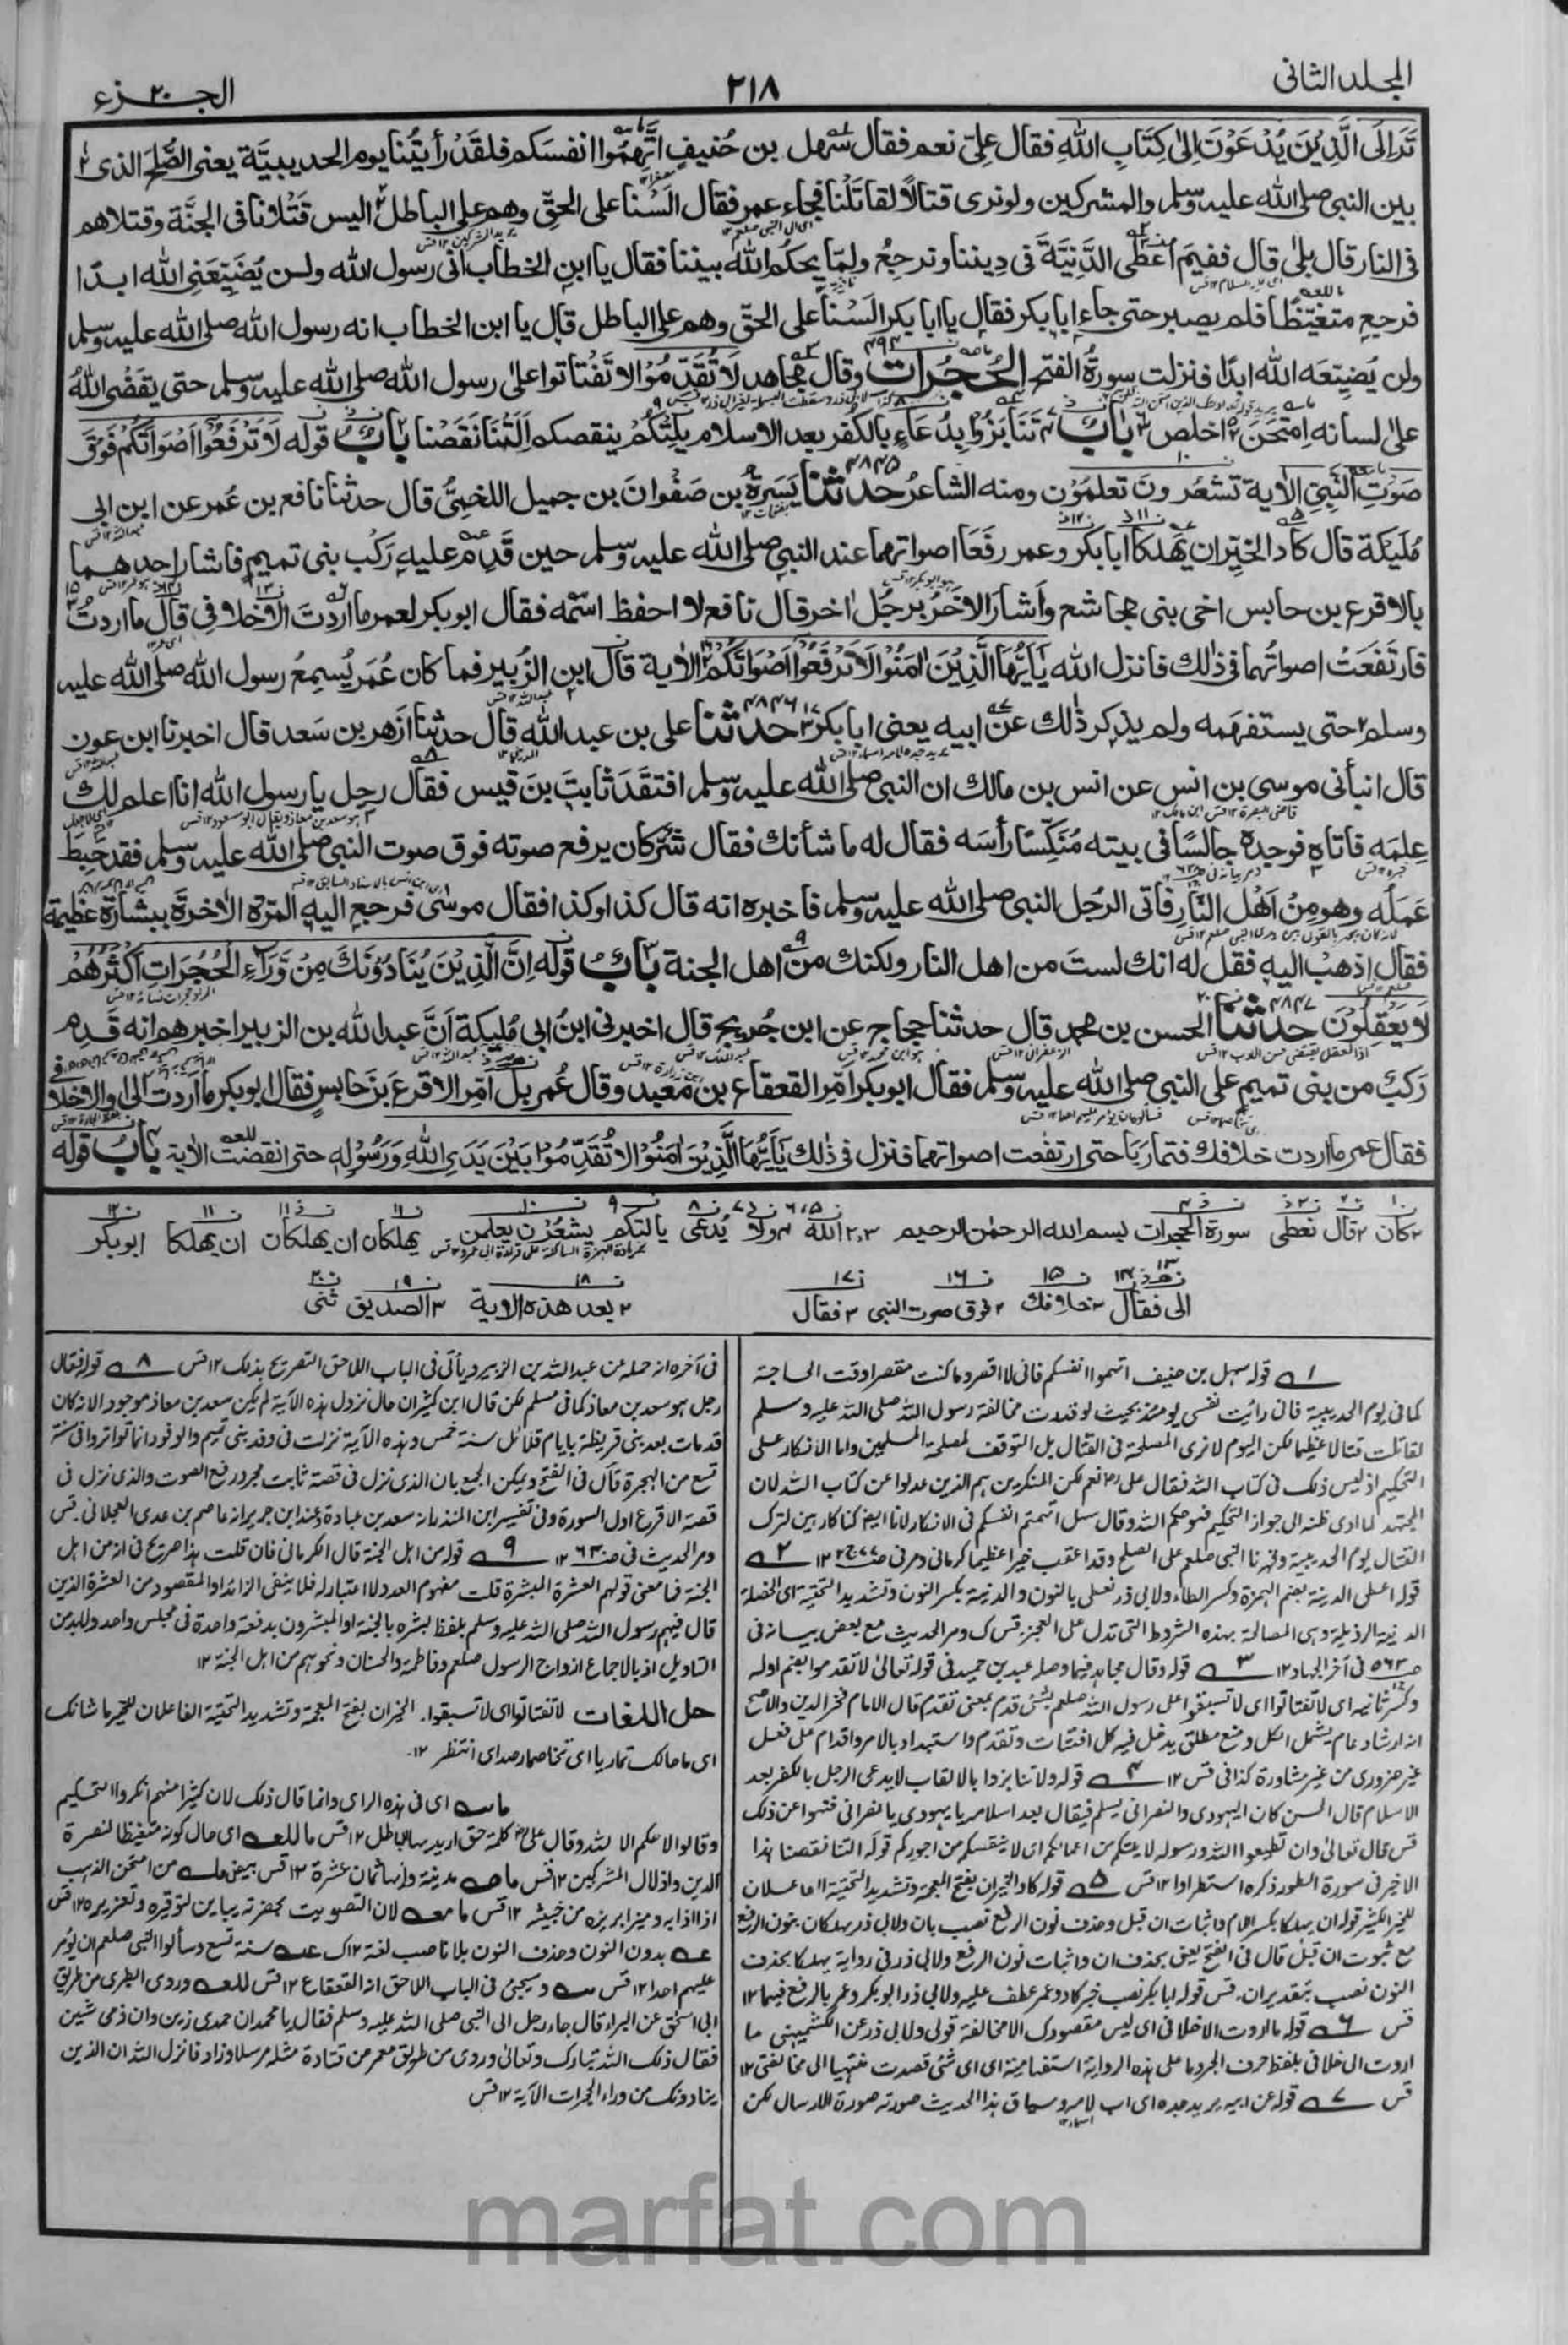 المجلد الثانى
٢١٨
الجـــزء ٢٠
تَرَ اِلَى الَّذِيْنَ يُدْعَوْنَ اِلىٰ كِتَابِ اللهِ فقال علىّ نعم فقال سهل بن حُنيفٍ اتَّهِمُوا انفسَكم فلقَدْ رأيتُنا يوم الحديبيَّة يعنى الصُّلحَ الذى
بين النبى صلى الله عليه وسلم والمشركين ولو نرى قتالًا لقاتَلْنا فجاء عمر فقال اَلَسْنا على الحقّ وهم على الباطل اليس قَتْلانا فى الجنَّة وقتلاهم
فى النار قال بلىٰ قال ففيمَ اُعطِى الدَّنِيَّةَ فى دِيننا ونرجِعُ ولمّا يحكُم اللهُ بيننا فقال يا ابن الخطاب انى رسول الله ولن يُضَيِّعَنِى الله ابدًا
فرجع متغيِّظًا فلم يصبر حتى جاء ابا بكر فقال يا ابا بكر اَلَسْنا على الحقّ وهم على الباطل قال يا ابن الخطاب انه رسول الله صلى الله عليه وسلم
ولن يُضيِّعَه الله ابدًا فنزلت سورةُ الفتح الحُجُرات وقال مجاهد لَا تُقَدِّمُوْا لا تَفْتاتوا علىٰ رسول الله صلى الله عليه وسلم حتى يَقضى اللهُ
علىٰ لسانه اِمتَحَنَ اخلص باب تَنَابَزُوا يدعاءٍ بالكُفر بعد الاسلام يَلِتْكُمْ ينقصكم اَلَتْنَا نَقَصْنا باب قوله لَا تَرْفَعُوْا اَصْوَاتَكُمْ فَوْقَ
صَوْتِ النَّبِيِّ الآية تَشعُرُونَ تعلمُوْن ومنه الشاعرُ ٤٨٤٥ حدثنا يَسَرةُ بن صَفْوانَ بن جميل اللخمىُّ قال حدثنا نافع بن عُمر عن ابن ابى
مُلَيكة قال كاد الخيِّران يَهْلِكا ابا بكر وعمر رفَعَا اصواتهما عند النبى صلى الله عليه وسلم حين قَدِم عليه رَكْب بنى تميم فاشار احدهما
بالاقرع بن حابس اخى بنى مجاشع وأشار الآخرُ برجُل اٰخر قال نافع لا احفظ اسْمه فقال ابوبكر لعمر ما اردتَ الا خلافى قال ما اردتُ
فارتَفَعَتْ اصواتُهما فى ذٰلك فانزل الله يٰٓاَيُّهَا الَّذِيْنَ اٰمَنُوْا لَا تَرْفَعُوْٓا اَصْوَاتَكُمْ الاٰية قال ابن الزُّبير فما كان عُمَر يُسمِعُ رسول الله صلى الله عليه
وسلم حتى يستفهَمه ولم يذكر ذٰلك عن ابيه يعنى ابا بكر ٤٨٤٦ حدثنا على بن عبد الله قال حدثنا ازهر بن سَعد قال اخبرنا ابن عون
قال انبأنى موسى بن انس عن انس بن مالك ان النبى صلى الله عليه وسلم افتقَدَ ثابتَ بنَ قيس فقال رجل يا رسول الله انا اعلم لك
عِلمَه فاتاه فوجده جالسًا فى بيته مُنَكِّسًا رأسَه فقال له ما شأنك فقال شرٌّ كان يرفع صوته فوق صوت النبى صلى الله عليه وسلم فقد حَبِطَ
عَمَلُه وهو مِنْ اَهْل النّارِ فاتى الرجُل النبى صلى الله عليه وسلم فاخبره انه قال كذا وكذا فقال موسٰى فرجع اليه المرّة الاٰخرة ببشارة عظيمة
فقال اذهبْ اليه فقل له انك لستَ من اهل النار ولكنك من اهل الجنة باب قوله اِنَّ الَّذِيْنَ يُنَادُوْنَكَ مِنْ وَّرَآءِ الْحُجُرَاتِ اَكْثَرُهُمْ
لَا يَعْقِلُوْنَ ٤٨٤٧ حدثنا الحسن بن محمد قال حدثنا حجاج عن ابن جُريج قال اخبرنى ابنُ ابى مُليكة اَنَّ عبد الله بن الزبير اخبرهم انه قَدِم
رَكبٌ من بنى تميم على النبى صلى الله عليه وسلم فقال ابوبكر اَمِّر القعقاع بن معبد وقال عُمر بل اَمِّر الاقرعَ بنَ حابس فقال ابوبكر ما اردتَ الى او الا خلافى
فقال عمر ما اردت خلافك فتماريا حتى ارتفعت اصواتهما فنزل فى ذٰلك يٰٓاَيُّهَا الَّذِيْنَ اٰمَنُوْا لَا تُقَدِّمُوْا بَيْنَ يَدَىِ اللهِ وَرَسُوْلِهٖ حتى انقضت الآية باب قوله
كان قال نعطى سورة الحجرات بسم الله الرحمن الرحيم الله ولا يُدعى يالتكم يشعرن يعلمن يهلكان ان يهلكان ان يهلكا ابوبكر
الى فقال خلافك فوق صوت النبى فقال بعد هذه الاية الصديق ثنى
١ قوله سهل بن حنيف اتهموا انفسكم فانى لا اقصر وما كنت مقصرا وقت الحاجة
كما فى يوم الحديبية فانى رايت نفسى يومئذ بحيث لو قدرت مخالفة رسول الله صلى الله عليه وسلم
لقاتلت قتالا عظيما لكن اليوم لا نرى المصلحة فى القتال بل التوقف لمصلحة المسلمين واما الانكار على
التحكيم اذ ليس ذلك فى كتاب الله فقال على نعم لكن المنكرين هم الذين عدلوا عن كتاب الله لان
المجتهد لما ادى ظنه الى جواز التحكيم فهو حكم الله وقال سهل اتهمتم انفسكم فى الانكار لانا ايضا كنا كارهين لترك
القتال يوم الحديبية وقهرنا النبى صلعم على الصلح وقد اعقب خيرا عظيما كرمانى ومر فى ١٢ ٢
قوله اعطى الدنية بضم الهمزة وكسر الطاء ولابى ذر نعطى بالنون والدنية بكسر النون وتشديد التحتية اى الخصلة
الدنية الرذيلة وهى المصالحة بهذه الشروط التى تدل على العجز قس ك ومر الحديث مع بعض بيانه فى
فى آخر الجهاد ١٢ ٣ قوله وقال مجاهد فيما وصله عبد بن حميد فى قوله تعالى لا تقدموا بضم اوله
وكسر ثانيه اى لا تفتاتوا اى لا تسبقوا على رسول الله صلعم بشئ قدم بمعنى تقدم قال الامام فخر الدين والاصح
انه ارشاد عام يشمل الكل ومنع مطلق يدخل فيه كل افتئات وتقدم واستبداد بالامر واقدام على فعل
غير ضرورى من غير مشاورة كذا فى قس ١٢ ٤ قوله ولا تنابزوا بالالقاب لا يدعى الرجل بالكفر بعد
الاسلام قال الحسن كان اليهودى والنصرانى يسلم فيقال بعد اسلامه يا يهودى يا نصرانى فنهوا عن ذلك
قس قال تعالى وان تطيعوا الله ورسوله لا يلتكم من اعمالكم اى لا ينقصكم من اجوركم قوله التنا نقصنا هذا
الاخير فى سورة الطور ذكره استطرادا ١٢ قس ٥ قوله كاد الخيران بفتح المعجمة وتشديد التحتية الفاعلان
للخير الكثير قوله ان يهلكا بكسر اللام واثبات ان قبل وحذف نون الرفع نصب بان ولابى ذر يهلكان بنون الرفع
مع ثبوت ان قبل قال فى الفتح يعنى بحذف ان واثبات نون الرفع ولابى ذر فى رواية يهلكا بحذف
النون نصب بتقدير ان قس قوله ابا بكر نصب خبر كاد وعمر عطف عليه ولابى ذر ابو بكر وعمر بالرفع فيهما ١٢
قس ٦ قوله ما اردت الا خلافى اى ليس مقصودك الا مخالفة قولى ولابى ذر عن الكشميهنى ما
اردت الى خلافى بلفظ حرف الجر وما على هذه الرواية استفهامية اى اى شئ قصدت منتهيا الى مخالفتى ١٢
قس ٧ قوله عن ابيه يريد جده اى اب لامه وسياق هذا الحديث صورته صورة الارسال لكن
فى آخره انه حمله عن عبد الله بن الزبير ويأتى فى الباب اللاحق التصريح بذلك ١٢ قس ٨ قوله فقال
رجل هو سعد بن معاذ كما فى مسلم لكن قال ابن كثير ان حال نزول هذه الآية لم يكن سعد بن معاذ موجودا لانه كان
قد مات بعد بنى قريظة بايام قلائل سنة خمس وهذه الآية نزلت فى وفد بنى تميم والوفود انما تواتروا فى سنة
تسع من الهجرة قال فى الفتح ويمكن الجمع بان الذى نزل فى قصة ثابت مجرد رفع الصوت والذى نزل فى
قصة الاقرع اول السورة وفى تفسير ابن المنذر انه سعد بن عبادة وعند ابن جرير انه عاصم بن عدى العجلانى قس
ومر الحديث فى ١٢ ٩ قوله من اهل الجنة قال الكرمانى فان قلت هذا صريح فى انه من اهل
الجنة فما معنى قولهم العشرة المبشرة قلت مفهوم العدد لا اعتبار له فلا ينفى الزائد او المقصود من العشرة الذين
قال فيهم رسول الله صلى الله عليه وسلم بلفظ بشره بالجنة او المبشرون بدفعة واحدة فى مجلس واحد ولابد من
التاويل اذ بالاجماع ازواج الرسول صلعم وفاطمة والحسنان ونحوهم من اهل الجنة ١٢
حل اللغات لا تفتاتوا اى لا تسبقوا. الخيران بفتح المعجمة وتشديد التحتية الفاعلان للخير ما شانك
اى ما حالك تماريا اى تخاصما اى انتظر ١٢
اى فى هذه الراى وانما قال ذلك لان كثيرا منهم انكروا التحكيم
وقالوا لا حكم الا لله وقال على كلمة حق اريد بها باطل ١٢ قس اى حال كونه متغيظا لنصرة
الدين واذلال المشركين ١٢ قس مدنية وآيها ثمان عشرة ١٢ قس من امتحن الذهب
اذا اذابه وميز ابريزه من خبثه ١٢ قس لان التصويت بحضرته يباين توقيره وتعزيره ١٢ قس
بدون النون وحذف النون بلا ناصب لغة ١٢ ك سنة تسع وسألوا النبى صلعم ان يؤمر
عليهم احدا ١٢ قس ويجئ فى الباب اللاحق انه القعقاع ١٢ قس وروى الطبرى من طريق
ابى اسحق عن البراء قال جاء رجل الى النبى صلى الله عليه وسلم فقال يا محمد ان حمدى زين وان ذمى شين
فقال ذلك الله تبارك وتعالى وروى من طريق معمر عن قتادة مثله مرسلا وزاد فانزل الله ان الذين
ينادونك من وراء الحجرات الآية ١٢ قس
marfat.com